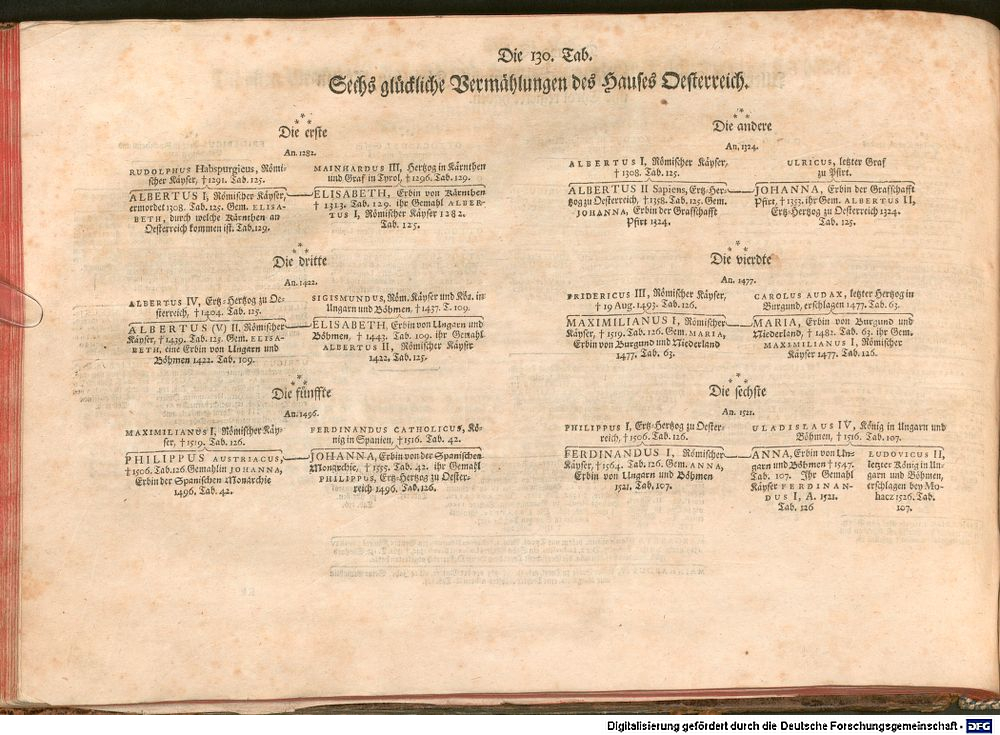 Die 130. Tab.
Sechs glückliche Vermählungen des Hauses Oesterreich.
Die erste
An. 1282.
RUDOLPHUS Habspurgicus, Römi-
scher Käyser, † 1291. Tab. 125.
MAINHARDUS III, Hertzog in Kärnthen
und Graf in Tyrol, † 1296. Tab. 129.
ALBERTUS I, Römischer Käyser,
ermordet 1308. Tab. 125. Gem. ELISA-
BETH, durch welche Kärnthen an
Oesterreich kommen ist. Tab. 129.
ELISABETH, Erbin von Kärnthen
† 1313. Tab. 129. ihr Gemahl ALBER-
TUS I, Römischer Käyser 1282.
Tab. 125.
Die andere
An. 1324.
ALBERTUS I, Römischer Käyser,
† 1308. Tab. 125.
ULRICUS, letzter Graf
zu Pfirt.
ALBERTUS II Sapiens, Ertz-Her-
tzog zu Oesterreich, † 1358. Tab. 125. Gem.
JOHANNA, Erbin der Graffschafft
Pfirt 1324.
JOHANNA, Erbin der Graffschafft
Pfirt, † 1353. ihr Gem. ALBERTUS II,
Ertz-Hertzog zu Oesterreich 1324.
Tab. 125.
Die dritte
An. 1422.
ALBERTUS IV, Ertz-Hertzog zu Oe-
sterreich, † 1404. Tab. 125.
SIGISMUNDUS, Röm. Käyser und Kön. in
Ungarn und Böhmen, † 1437. T. 109.
ALBERTUS (V) II, Römischer
Käyser, † 1439. Tab. 125. Gem. ELISA-
BETH, eine Erbin von Ungarn und
Böhmen 1422. Tab. 109.
ELISABETH, Erbin von Ungarn und
Böhmen, † 1443. Tab. 109. ihr Gemahl
ALBERTUS II, Römischer Käyser
1422. Tab. 125.
Die vierdte
An. 1477.
FRIDERICUS III, Römischer Käyser,
† 19 Aug. 1493. Tab. 126.
CAROLUS AUDAX, letzter Hertzog in
Burgund, erschlagen 1477. Tab. 63.
MAXIMILIANUS I, Römischer
Käyser, † 1519. Tab. 126. Gem. MARIA,
Erbin von Burgund und Niederland
1477. Tab. 63.
MARIA, Erbin von Burgund und
Niederland, † 1482. Tab. 63. ihr Gem.
MAXIMILIANUS I, Römischer
Käyser 1477. Tab. 126.
Die fünffte
An. 1496.
MAXIMILIANUS I, Römischer Käy-
ser, † 1519. Tab. 126.
FERDINANDUS CATHOLICUS, Kö-
nig in Spanien, † 1516. Tab. 42.
PHILIPPUS AUSTRIACUS,
† 1506. Tab. 126 Gemahlin JOHANNA,
Erbin der Spanischen Monarchie
1496. Tab. 42.
JOHANNA, Erbin von der Spanischen
Monarchie, † 1555. Tab. 42. ihr Gemahl
PHILIPPUS, Ertz-Hertzog zu Oester-
reich 1496. Tab. 126.
Die sechste
An. 1521.
PHILIPPUS I, Ertz-Hertzog zu Oester-
reich, † 1506. Tab. 126.
ULADISLAUS IV, König in Ungarn und
Böhmen, † 1516. Tab. 107.
FERDINANDUS I, Römischer
Käyser, † 1564. Tab. 126. Gem. ANNA,
Erbin von Ungarn und Böhmen
1521. Tab. 107.
ANNA, Erbin von Un-
garn und Böhmen † 1547.
Tab. 107. Ihr Gemahl
Käyser FERDINAN-
DUS I, A. 1521.
Tab. 126
LUDOVICUS II,
letzter König in Un-
garn und Böhmen,
erschlagen bey Mo-
hacz 1526. Tab.
107.
Digitalisierung gefördert durch die Deutsche Forschungsgemeinschaft - DFG